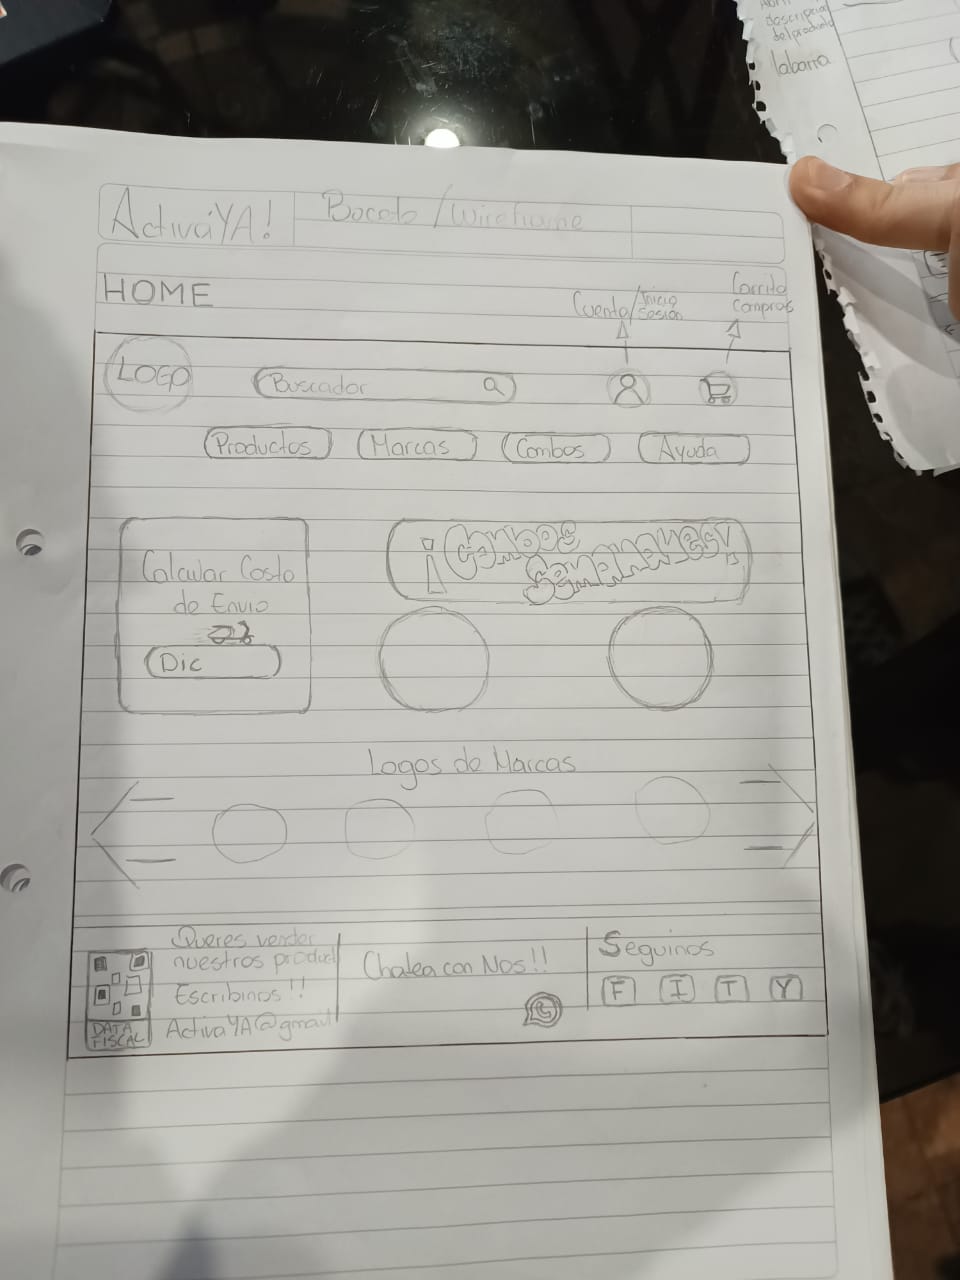 descripcion
del producto
la barra
ActiváYA!
Boceto / Wireframe
HOME
Cuenta/Inicio
Sesión
Carrito
Compras
LOGO
Buscador
Productos
Marcas
Combos
Ayuda
Calcular Costo
de Envio
Dic
¡Combos
Semanales!
Logos de Marcas
Queres vender
nuestros product
Escribinos!!
ActivaYA@gmail
DATA
FISCAL
Chatea con Nos!!
Seguinos
F I T Y